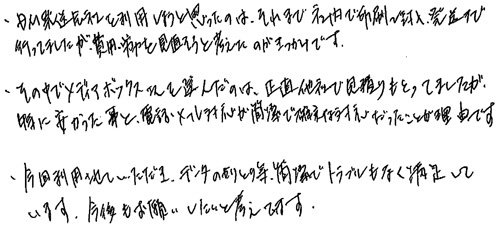 ・DM発送代行を利用しようと思ったのは、それまで社内で印刷、封入、発送まで
行ってましたが、費用、労力を見直そうと考えたのがきっかけです。
・その中でメディアボックスさんを選んだのは、正直他社で見積りもとってましたが、
特に安かった事と、電話・メール対応が簡潔で
だったことが理由です
・今回利用させていただき、データのやりとり等、簡潔でトラブルもなく満足して
います。今後もお願いしたいと考えてます。